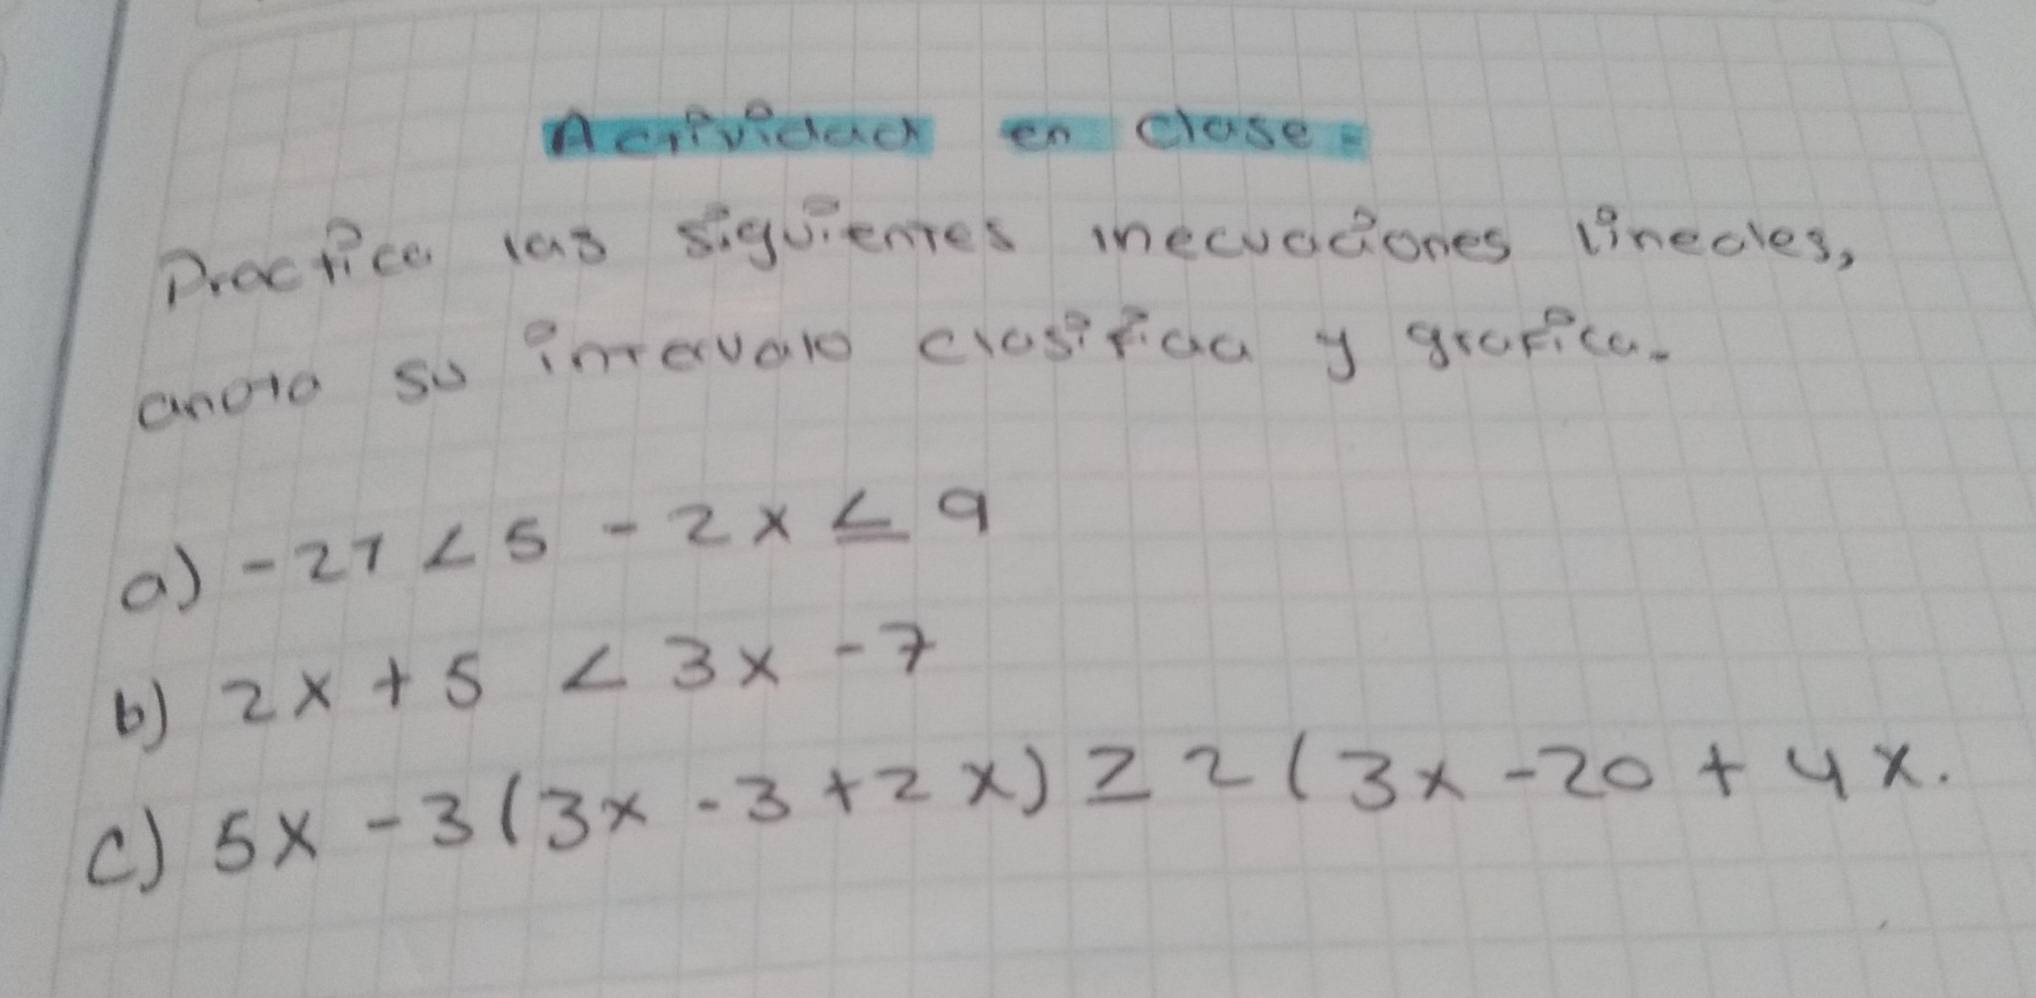 Actividad en clase=
Practica las siguientes inecuaciones lineales,
anota su intervalo clasifica y grafica.
a) -27 < 5 - 2x ≤ 9
b) 2x + 5 < 3x - 7
c) 5x - 3(3x - 3 + 2x) ≥ 2(3x - 20 + 4x.